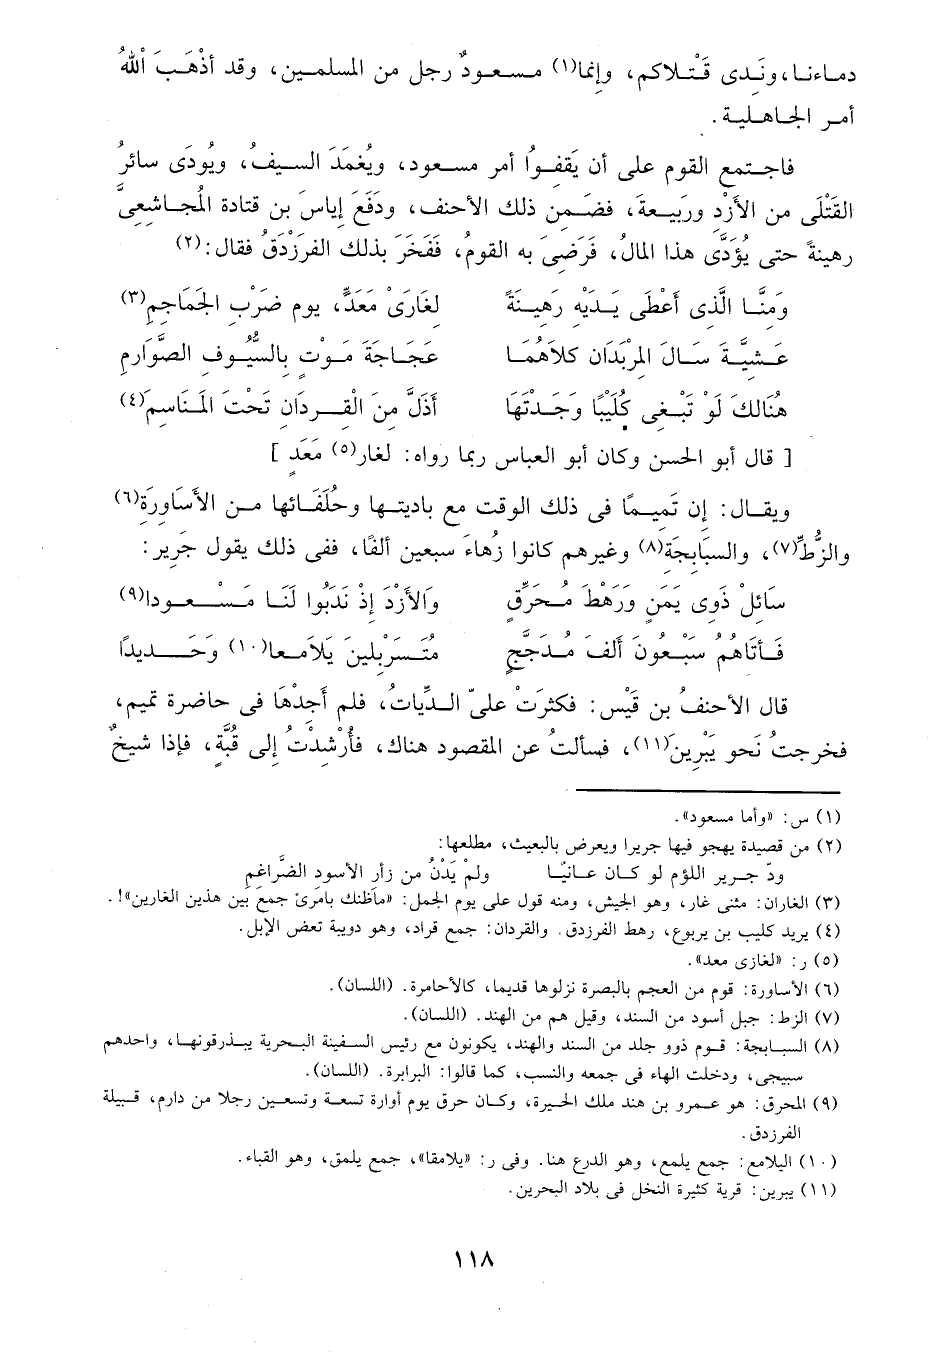 دماءنا، ونَدى قَتْلاكم، وإنما(١) مسعودٌ رجل من المسلمين، وقد أذْهَبَ ٱللهُ
أمر الجاهلية.
فاجتمع القوم على أن يَقفُوا أمر مسعود، ويُغْمَدَ السيفُ، ويُودَى سائرُ
القَتْلَى من الأَزْد ورَبيعة، فضَمن ذلك الأحنف، ودَفَعَ إياس بن قتادة المُجاشعيَّ
رهينةً حتى يُؤَدَّى هذا المالُ، فَرَضىَ به القومُ، فَفَخَرَ بذلك الفَرَزْدَقُ فقال:(٢)
ومَنَّا الَّذى أَعْطَى يَدَيْه رَهينَةً لغَارَىْ مَعَدٍّ، يوم ضَرْب الجَمَاجم(٣)
عَشيَّةَ سَالَ المرْبَدَان كلاَهُمَا عَجَاجَةَ مَوْت بالسُّيُوف الصَّوَارم
هُنَالكَ لَوْ تَبْغى كُلَيْبًا وَجَدْتَهَا أَذَلَّ منَ الْقردَان تَحْتَ المَنَاسم(٤)
[ قال أبو الحسن وكان أبو العباس ربما رواه: لغار(٥) مَعَد ]
ويقال: إن تَميمًا فى ذلك الوقت مع باديتها وحُلَفَائها من الأَسَاورَة(٦)
والزُّطِّ(٧)، والسبَابجَة(٨) وغيرهم كانوا زُهاءَ سبعين ألفًا، ففى ذلك يقول جَرير:
سَائلْ ذَوى يَمَن وَرَهْطَ مُحَرِّق وَالأَزْدَ إذْ نَدَبُوا لَنَا مَسْعودا(٩)
فَأتَاهُمُ سَبْعُونَ أَلْفَ مُدَجَّج مُتَسَرْبلينَ يَلامعا(١٠) وحَديدًا
قال الأحنفُ بن قَيْس: فكثرَتْ علىّ الدِّيات، فلم أجدْهَا فى حاضرة تميم،
فخرجتُ نَحو يَبْرين(١١)، فسألتُ عن المقصود هناك، فأُرْشدْتُ إلى قُبَّة، فإذا شيخٌ
(١) س: «وأما مسعود».
(٢) من قصيدة يهجو فيها جريرا ويعرض بالبعيث، مطلعها:
ودّ جرير اللؤم لو كان عانيًا ولمْ يَدْنُ من زأر الأسود الضَّراغم
(٣) الغاران: مثنى غار، وهو الجيش، ومنه قول على يوم الجمل: «ماظنك بامرئ جمع بين هذين الغارين»!.
(٤) يريد كليب بن يربوع، رهط الفرزدق. والقردان: جمع قراد، وهو دويبة تعض الإبل.
(٥) ر: «لغازى معد».
(٦) الأساورة: قوم من العجم بالبصرة نزلوها قديما، كالأحامرة. (اللسان).
(٧) الزط: جبل أسود من السند، وقيل هم من الهند. (اللسان).
(٨) السبابجة: قوم ذوو جلد من السند والهند، يكونون مع رئيس السفينة البحرية يبذرقونها، واحدهم
سبيجى، ودخلت الهاء فى جمعه والنسب، كما قالوا: البرابرة. (اللسان).
(٩) المحرق: هو عمرو بن هند ملك الحيرة، وكان حرق يوم أوارة تسعة وتسعين رجلا من دارم، قبيلة
الفرزدق.
(١٠) اليلامع: جمع يلمع، وهو الدرع هنا. وفى ر: «يلامقا»، جمع يلمق، وهو القباء.
(١١) يبرين: قرية كثيرة النخل فى بلاد البحرين.
١١٨